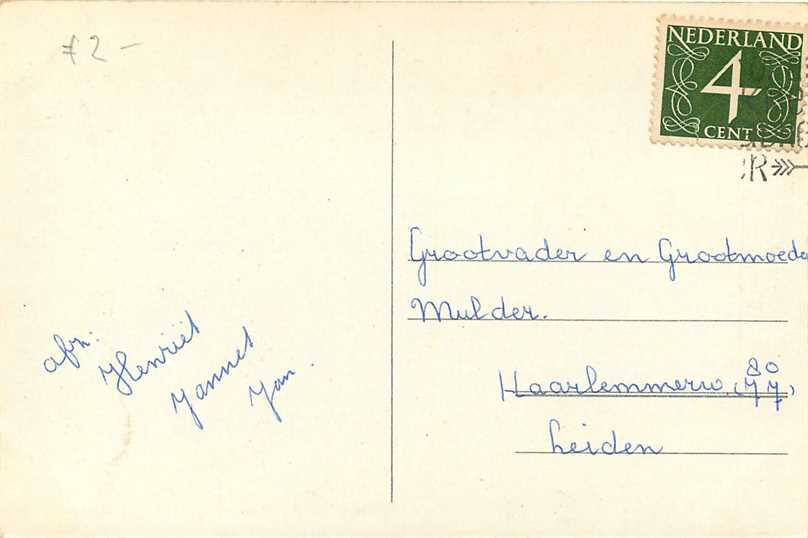 ≠ 2 -
NEDERLAND
4
CENT
R
Grootvader en Grootmoeder
Mulder.
80
Haarlemmerw. (77)
Leiden
afz:
Henriët
Jannet
Jan.